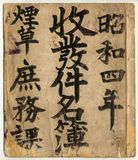 昭和四年
收發件名簿
煙草庶務課